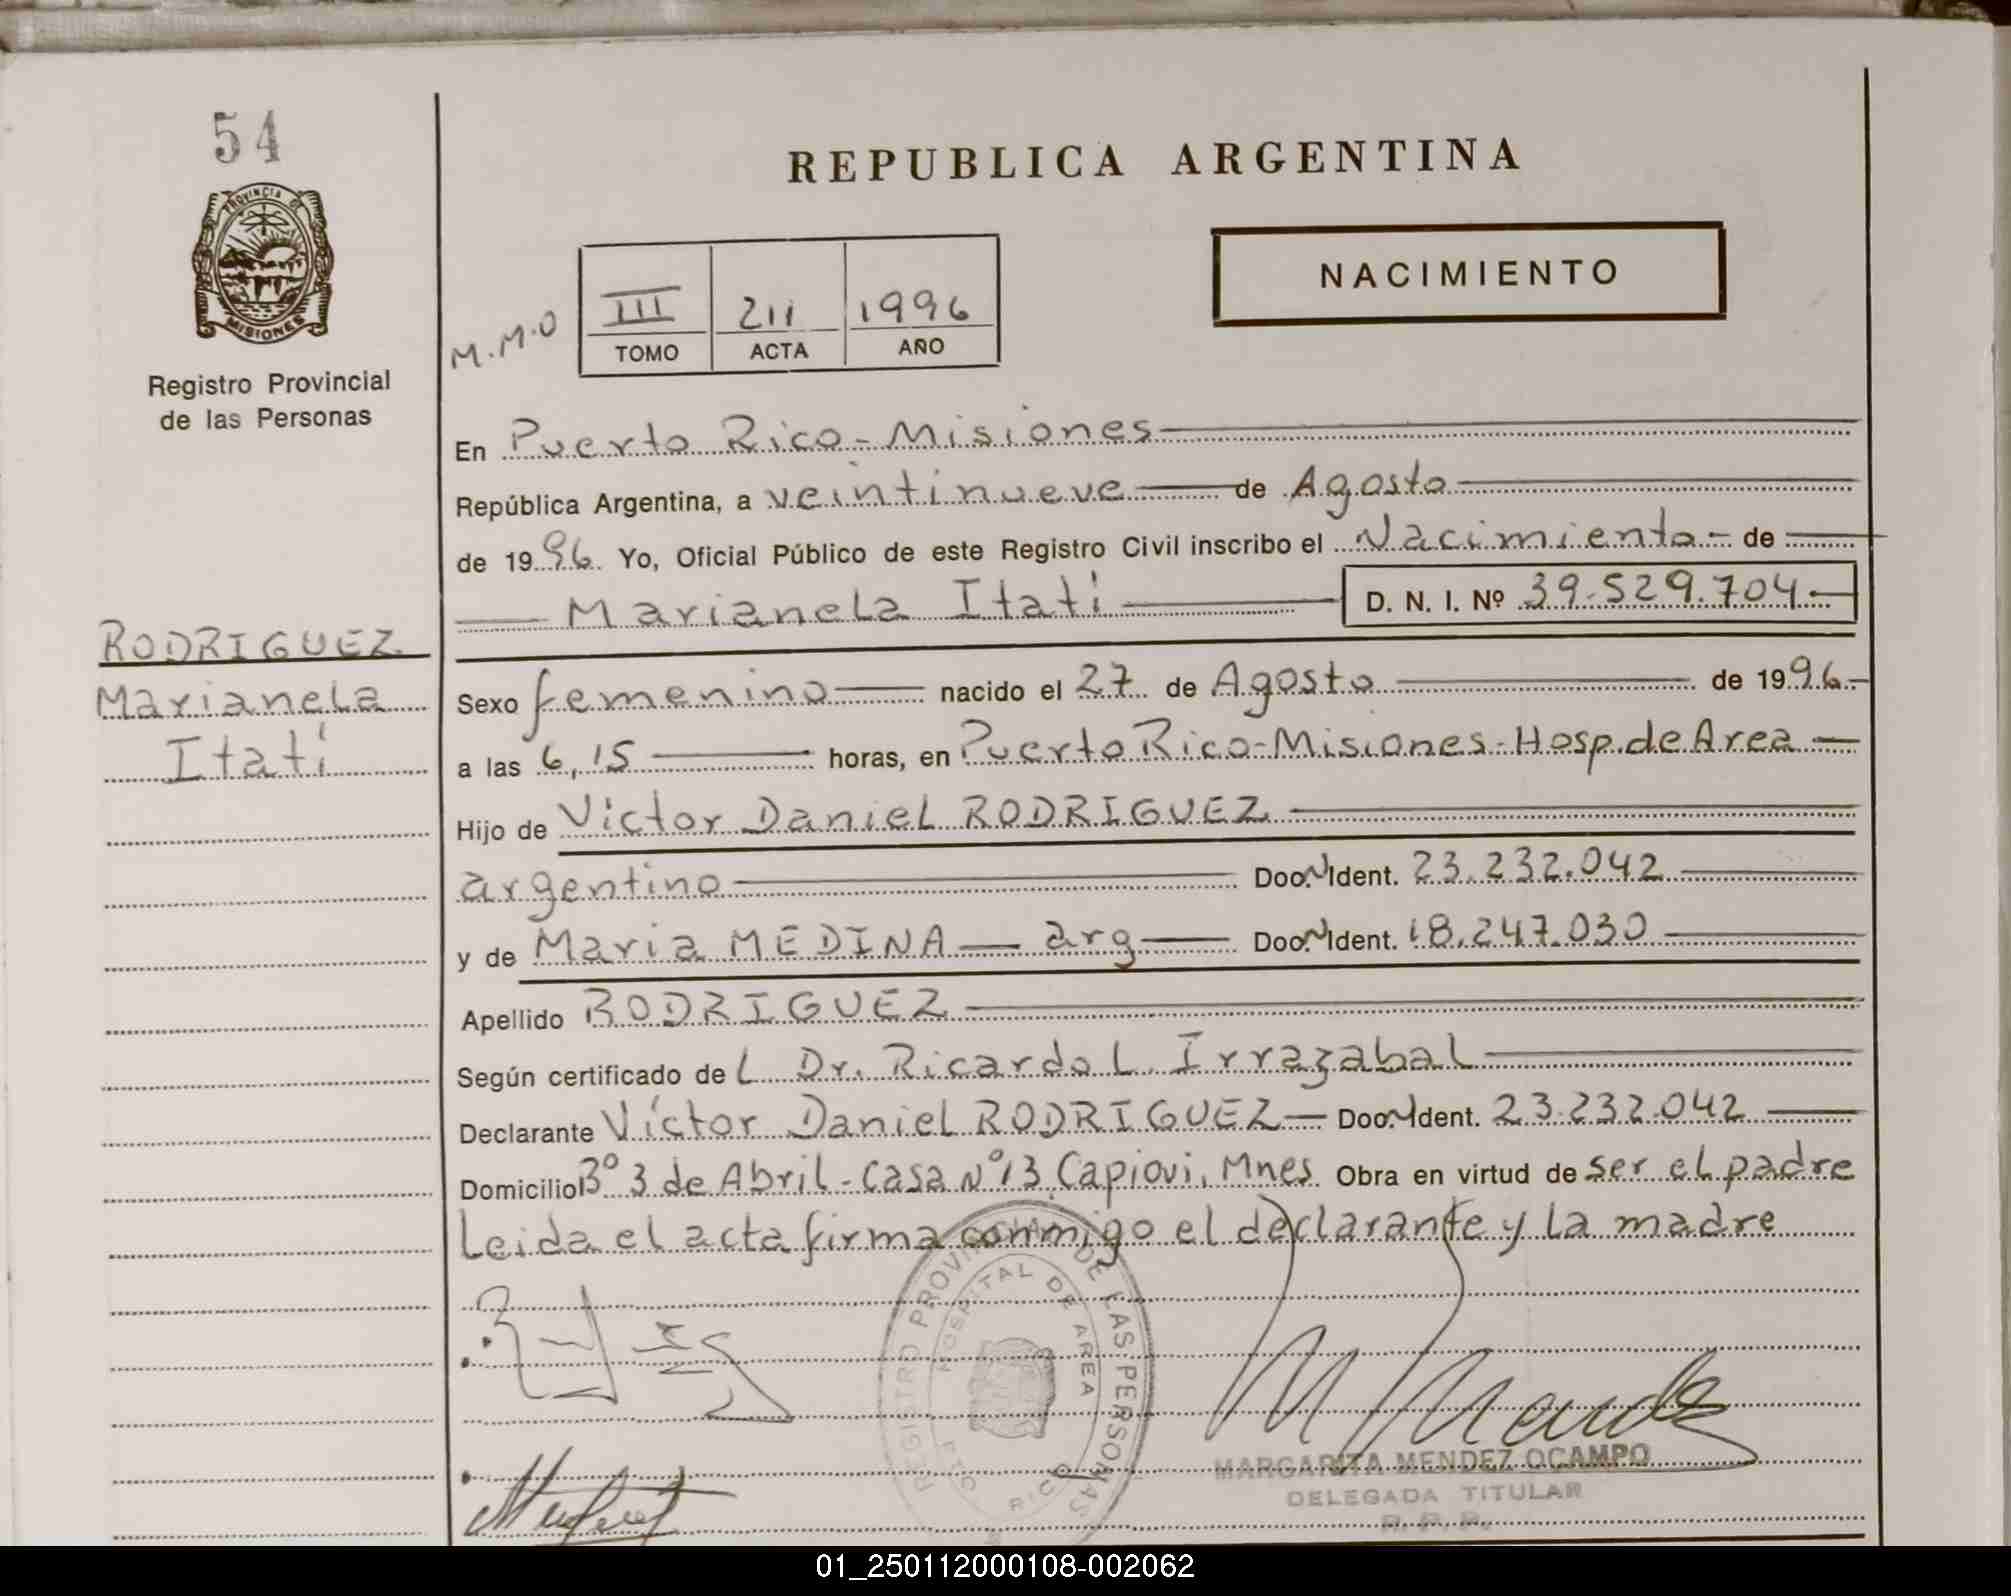 54
PROVINCIA DE
MISIONES
Registro Provincial
de las Personas
RODRIGUEZ
Marianela
Itatí
REPUBLICA ARGENTINA
NACIMIENTO
M.M.O
III 211 1996
TOMO ACTA AÑO
En Puerto Rico - Misiones
República Argentina, a veintinueve de Agosto
de 1996. Yo, Oficial Público de este Registro Civil inscribo el Nacimiento - de
Marianela Itatí D. N. I. Nº 39.529.704.-
Sexo femenino nacido el 27 de Agosto de 1996.-
a las 6,15 horas, en Puerto Rico - Misiones - Hosp. de Area
Hijo de Victor Daniel RODRIGUEZ
argentino Doc. N Ident. 23.232.042
y de Maria MEDINA arg Doc. N Ident. 18.247.030
Apellido RODRIGUEZ
Según certificado del Dr. Ricardo L. Irrazabal
Declarante Víctor Daniel RODRIGUEZ Doc. N Ident. 23.232.042
Domicilio Bº 3 de Abril - Casa Nº 13 Capiovi, Mnes Obra en virtud de ser el padre
Leida el acta firma conmigo el declarante y la madre
REGISTRO PROVINCIAL DE LAS PERSONAS
HOSPITAL DE AREA
RICO
MARGARITA MENDEZ OCAMPO
DELEGADA TITULAR
R. P. P.
01_250112000108-002062